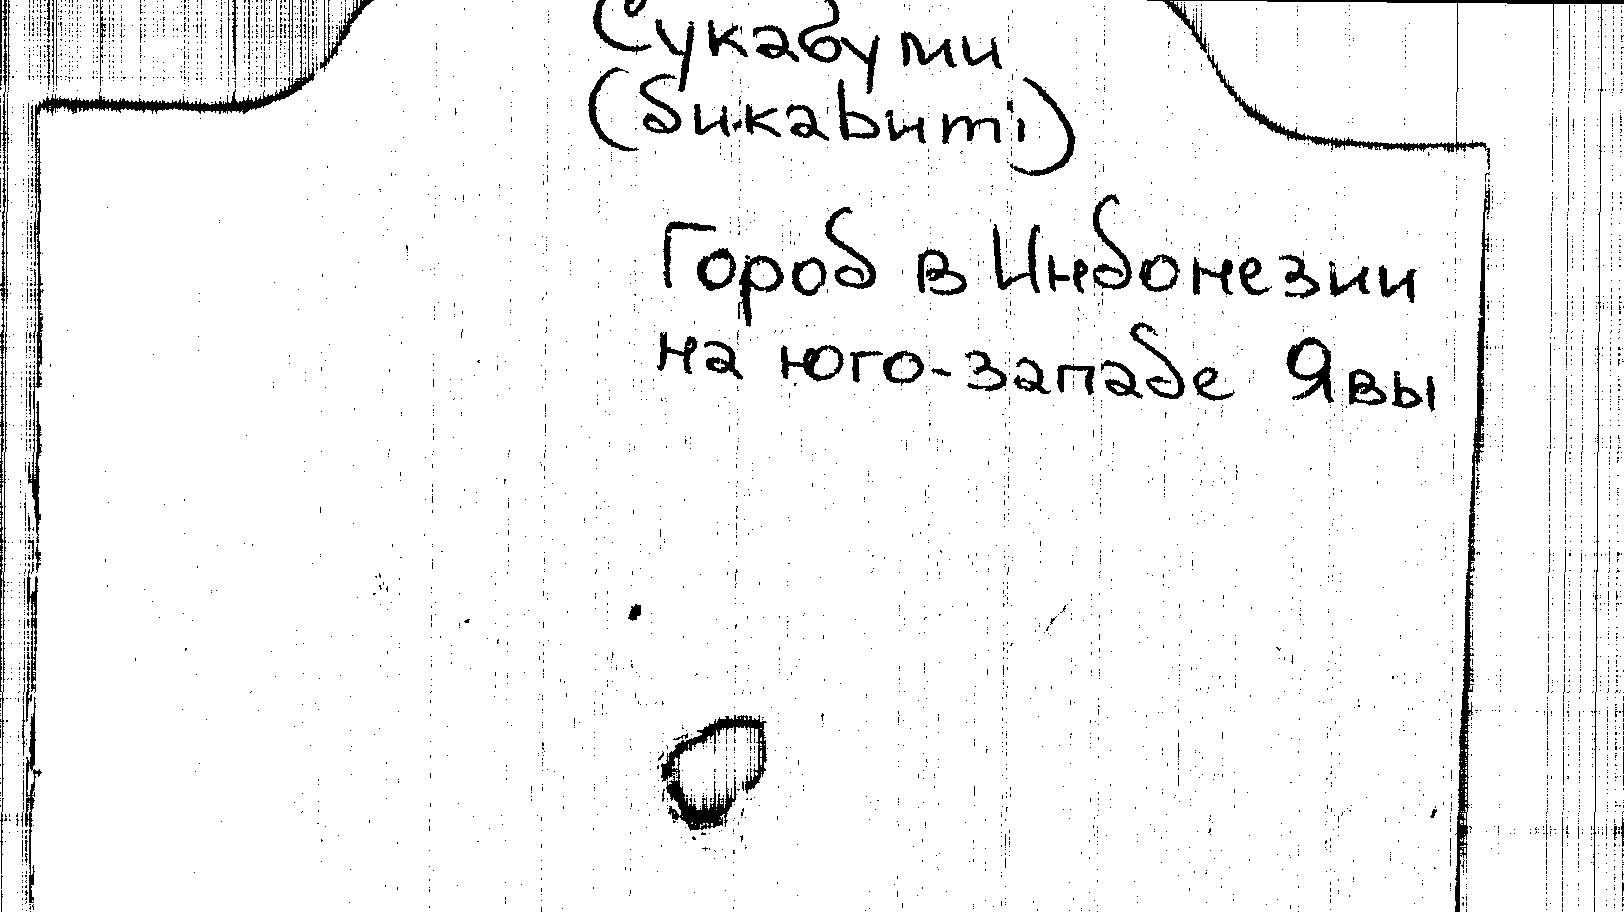 Сукабуми
(дикавиті)
Город в Индонезии
на юго-западе Явы